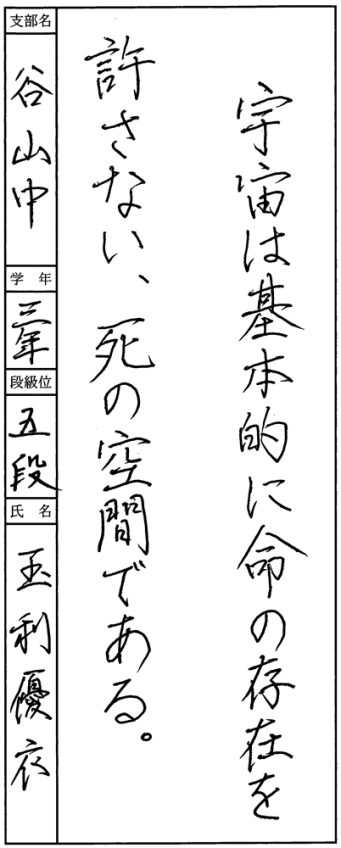 宇宙は基本的に命の存在を
許さない、死の空間である。
支部名
谷山中
学年
三年
段級位
五段
氏名
玉利優衣